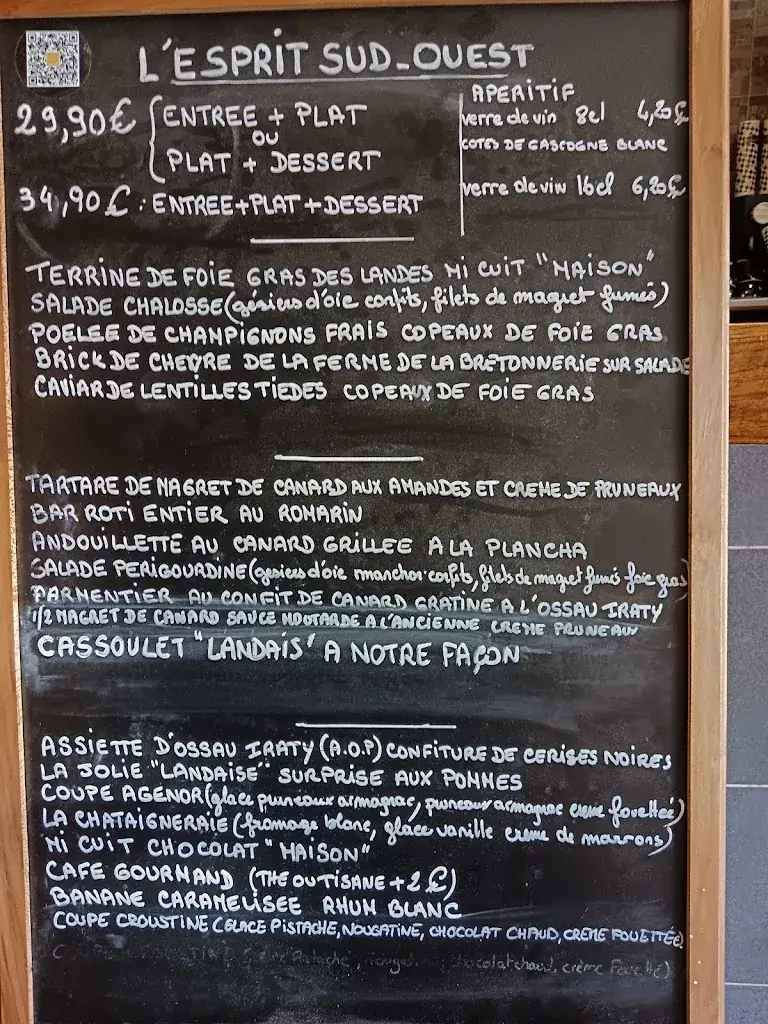 L'ESPRIT SUD-OUEST
29,90€ ENTREE + PLAT
OU
PLAT + DESSERT
34,90€ : ENTREE+PLAT+DESSERT
APERITIF
verre de vin 8cl 4,20€
COTES DE GASCOGNE BLANC
verre de vin 16cl 6,20€
TERRINE DE FOIE GRAS DES LANDES MI CUIT "MAISON"
SALADE CHALOSSE (gésiers d'oie confits, filets de magret fumés)
POELEE DE CHAMPIGNONS FRAIS COPEAUX DE FOIE GRAS
BRICK DE CHEVRE DE LA FERME DE LA BRETONNERIE SUR SALADE
CAVIAR DE LENTILLES TIEDES COPEAUX DE FOIE GRAS
TARTARE DE MAGRET DE CANARD AUX AMANDES ET CREME DE PRUNEAUX
BAR ROTI ENTIER AU ROMARIN
ANDOUILLETTE AU CANARD GRILLEE A LA PLANCHA
SALADE PERIGOURDINE (gesiers d'oie manchos confits, filets de magret fumés foie gras)
PARMENTIER AU CONFIT DE CANARD GRATINE A L'OSSAU IRATY
1/2 MAGRET DE CANARD SAUCE MOUTARDE A L'ANCIENNE CREME PRUNEAUX
CASSOULET "LANDAIS" A NOTRE FAÇON
ASSIETTE D'OSSAU IRATY (A.O.P) CONFITURE DE CERISES NOIRES
LA JOLIE "LANDAISE" SURPRISE AUX POMMES
COUPE AGENOR (glace pruneaux armagnac, pruneaux armagnac creme fouettée)
LA CHATAIGNERAIE (fromage blanc, glace vanille creme de marrons)
MI CUIT CHOCOLAT "MAISON"
CAFE GOURMAND (THE OU TISANE + 2€)
BANANE CARAMELISEE RHUM BLANC
COUPE CROUSTINE (GLACE PISTACHE, NOUGATINE, CHOCOLAT CHAUD, CREME FOUETTÉE)
Pistache, nougatine, chocolat chaud, crème Fouetté)